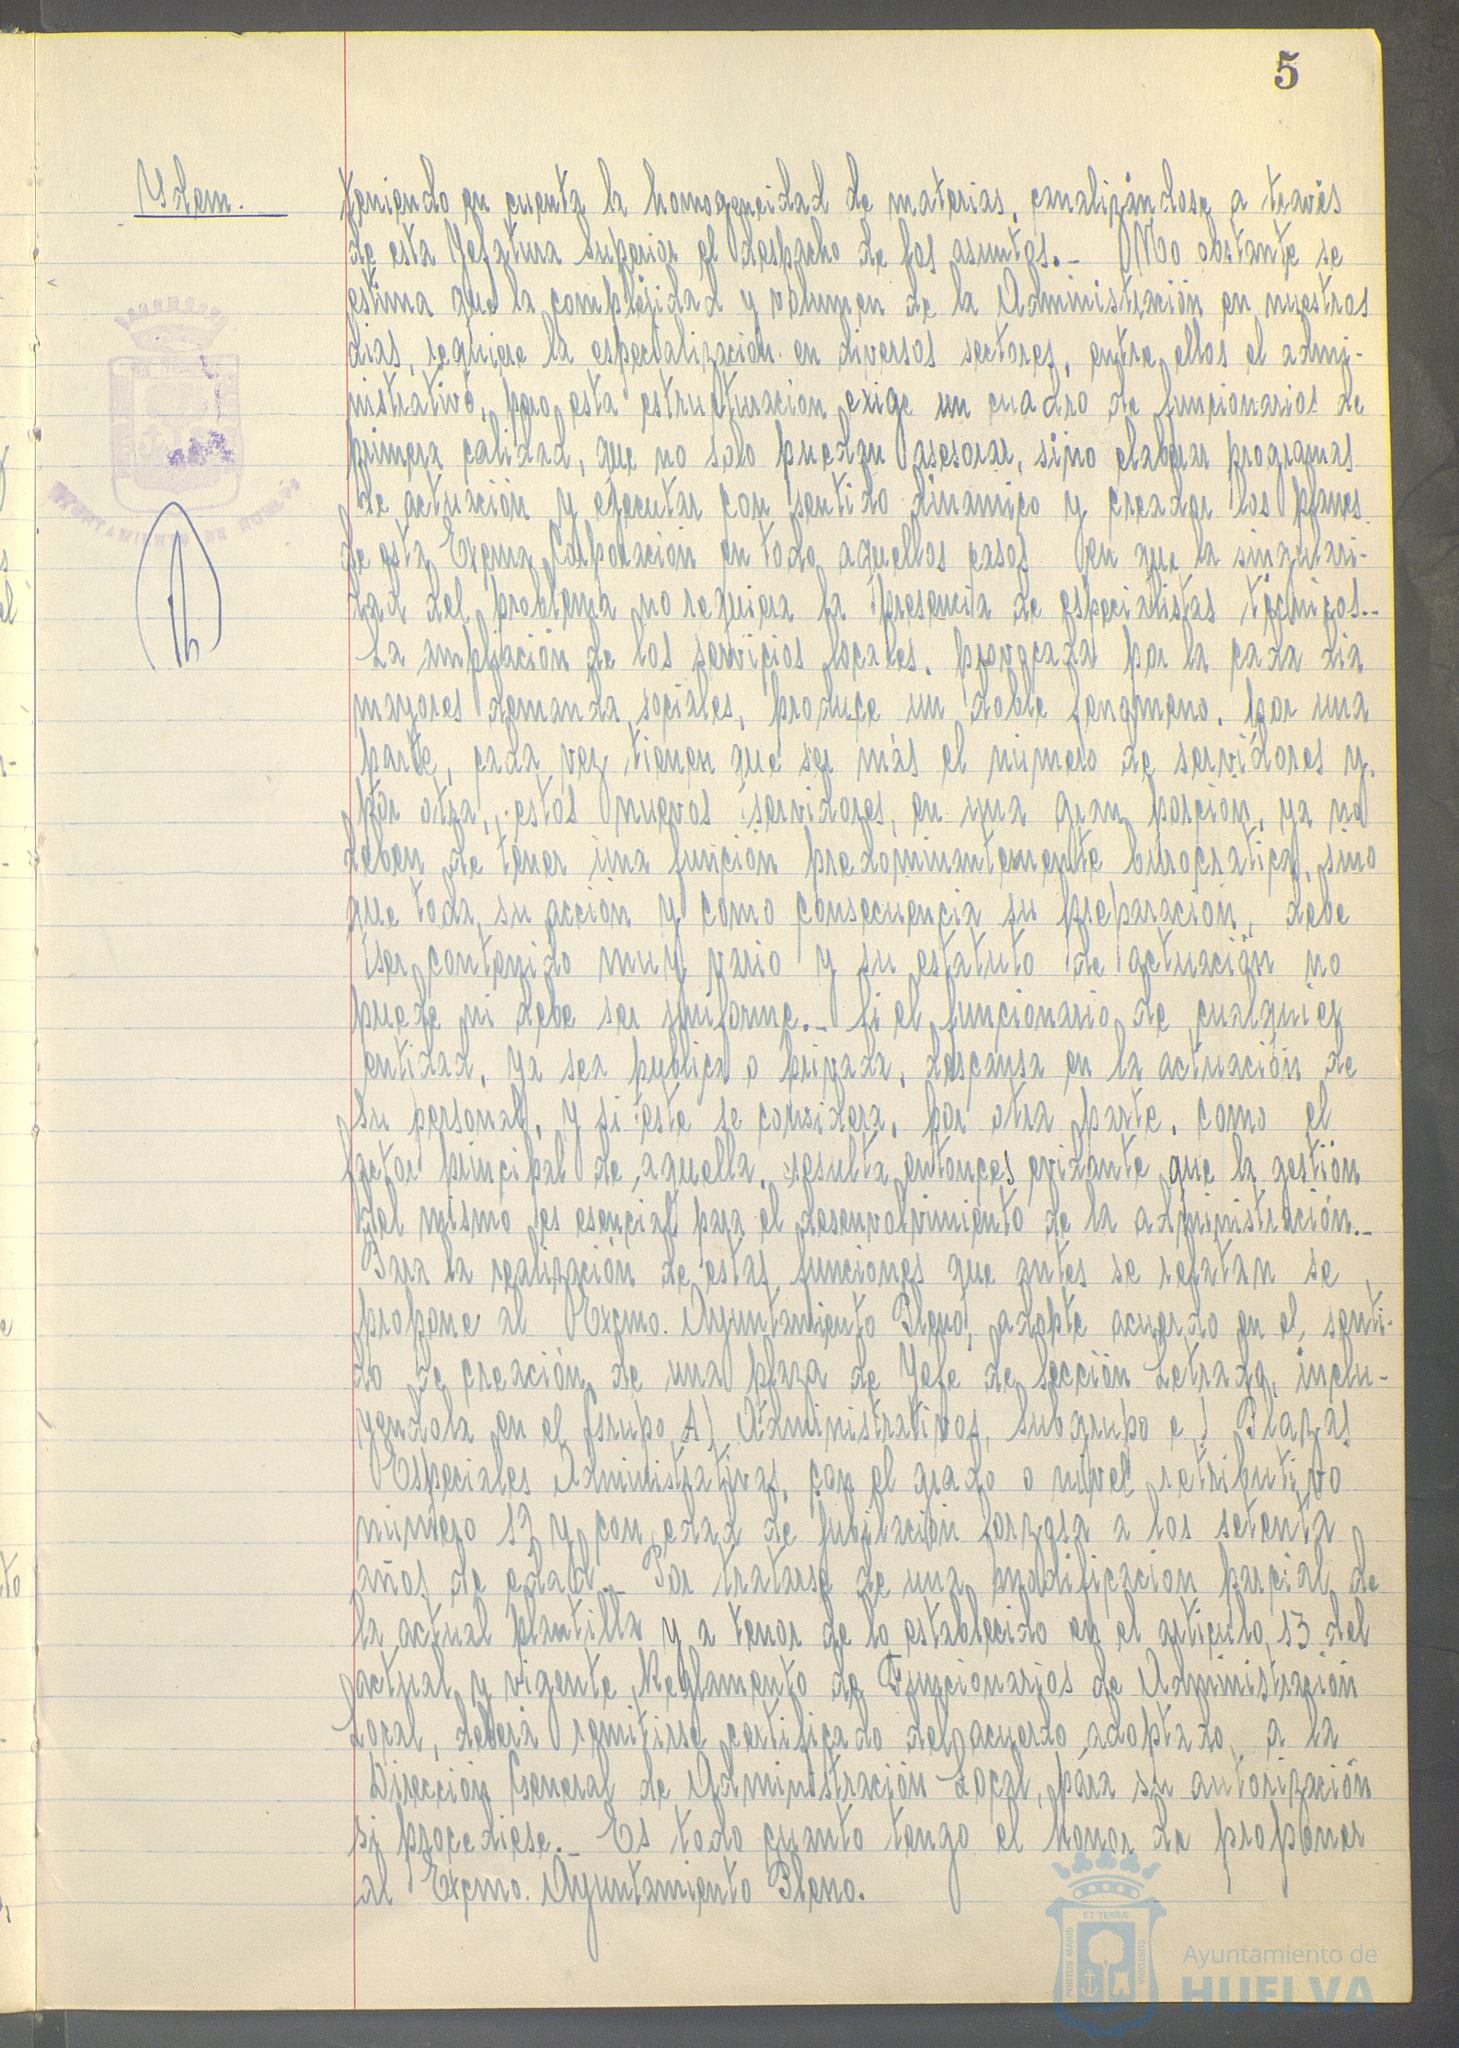 5
Ydem.
teniendo en cuenta la homogeneidad de materias, canalizándose a través
de esta Yefatura Superior el despacho de los asuntos.- No obstante se
estima que la complejidad y volumen de la Administración en nuestros
dias, requiere la especialización en diversos sectores, entre ellos el admi-
nistrativo, pero esta estructuración exige un cuadro de funcionarios de
primera calidad, que no solo puedan asesorar, sino elaborar programas
de actuación y ejecutar con sentido dinamico y creador los planes
de esta Excma Corporación en todo aquellos casos en que la singulari-
dad del problema no requiera la presencia de especialistas técnicos.-
La ampliación de los servicios locales, provocada por la cada dia
mayores demanda sociales, produce un doble fenomeno. Por una
parte, cada vez tienen que ser más el número de servidores y,
por otra, estos nuevos servidores, en una gran porción, ya no
deben de tener una función predominantemente burocratica, sino
que toda su acción y como consecuencia su preparación, debe
ser contenido muy vario y su estatuto de actuación no
puede ni debe ser uniforme.- Si el funcionario de cualquier
entidad, ya sea publica o privada, descansa en la actuación de
su personal, y si este se considera, por otra parte, como el
factor principal de aquella, resulta entonces evidante que la gestión
del mismo es esencial para el desenvolvimiento de la administración.-
Para la realización de estas funciones que antes se relatan se
propone al Excmo. Ayuntamiento Pleno, adopte acuerdo en el senti-
do de creación de una plaza de Yefe de Sección Letrado, inclu-
yendola en el Grupo A) Administrativos, Subgrupo c) Plazas
Especiales Administrativas, con el grado o nivel retributivo
número 12 y con edad de jubilación forzosa a los setenta
años de edad.- Por tratarse de una modificacion parcial de
la actual plantilla y a tenor de lo establecido en el articulo 13 del
actual y vigente Reglamento de Funcionarios de Administración
Local, deberá remitirse certificado del acuerdo adoptado a la
Dirección General de Administración Local, para su autorización
si procediese.- Es todo cuanto tengo el honor de proponer
al Excmo. Ayuntamiento Pleno.
ET TERRÆ
PORTUS MARIS
CUSTODIA
Ayuntamiento de
HUELVA